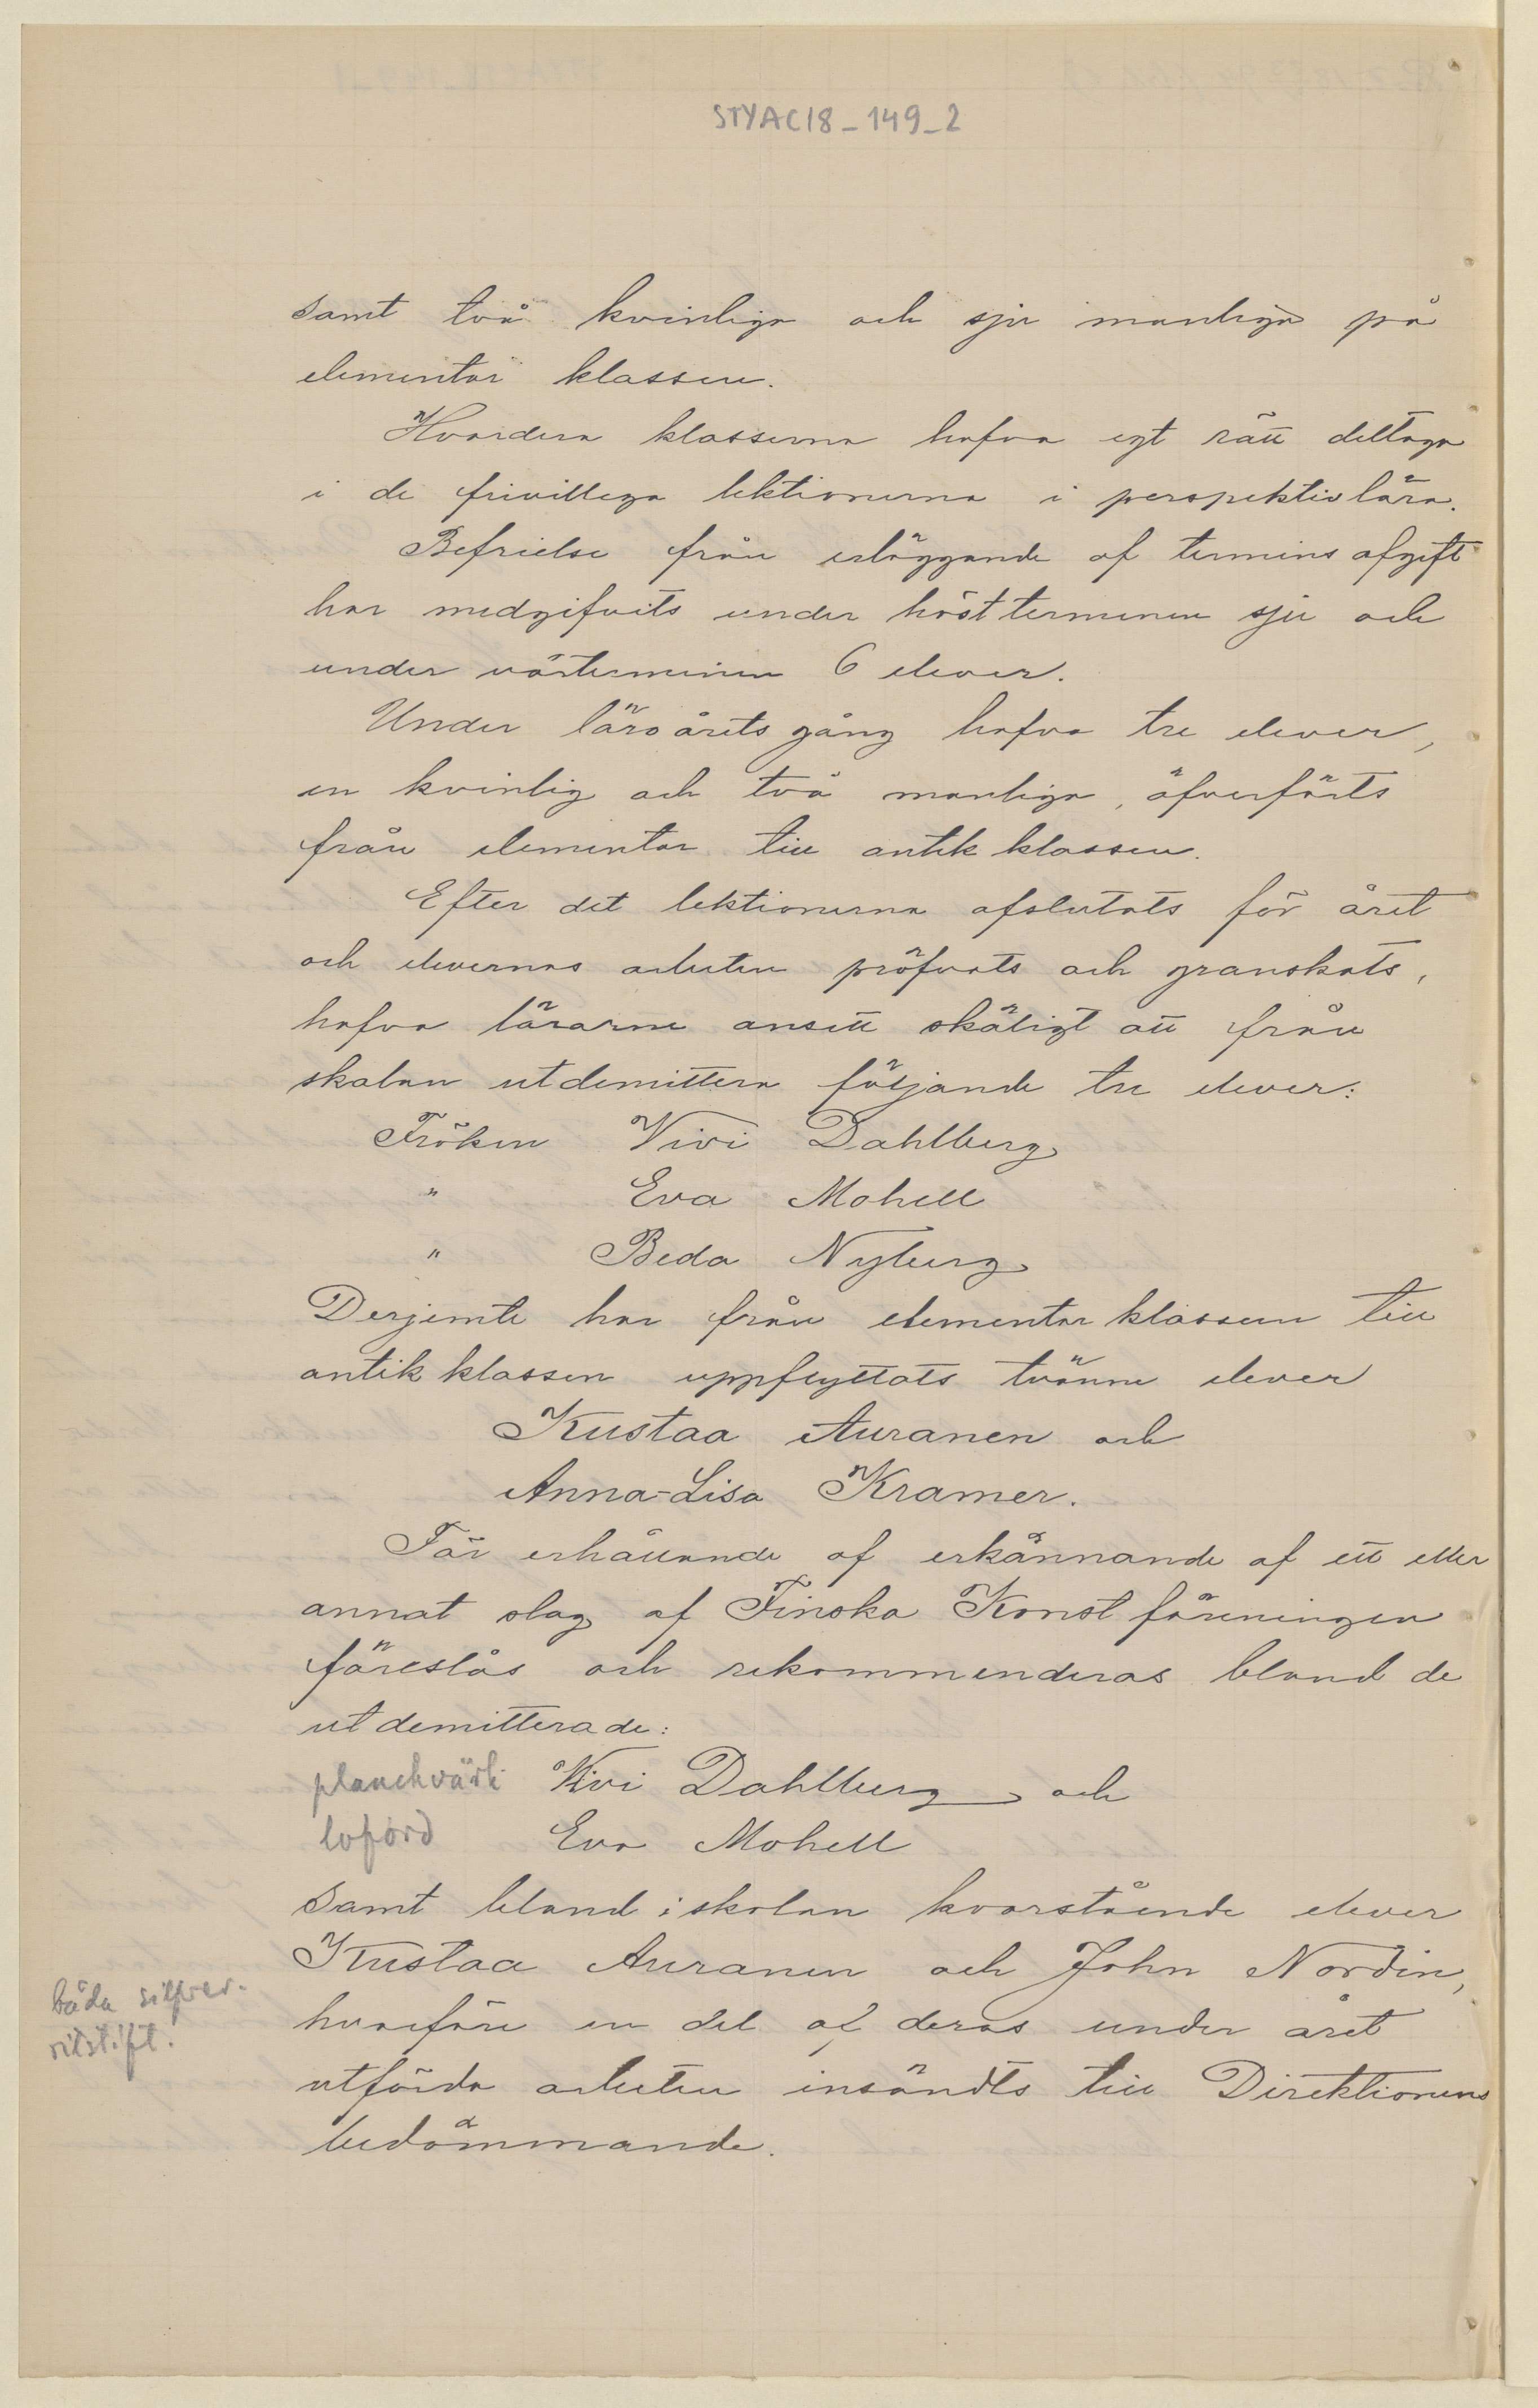 STYAC18_149_2
samt två kvinliga och sju manliga på
elementar klassen.
Hvardera klasserna hafva egt rätt deltaga
i de frivilliga lektionerna i perspektivlära.
Befrielse från erläggande af termins afgift
har medgifvits under höstterminen sju och
under vårterminen 6 elever.
Under läroårets gång hafva tre elever,
en kvinlig och två manliga, öfverförts
från elementar till antik klassen.
Efter det lektionerna afslutats för året
och elevernas arbeten pröfvats och granskats,
hafva lärarne ansett skäligt att från
skolan utdemittera följande tre elever:
Fröken Vivi Dahlberg
" Eva Mohell
" Beda Nyberg
Derjemte har från elementar klassen till
antik klassen uppflyttats tvänne elever
Kustaa Auranen och
Anna-Lisa Kramer.
För erhållande af erkännande af ett eller
annat slag af Finska Konstföreningen
föreslås och rekommenderas bland de
utdemitterade:
planchvärk Vivi Dahlberg och
loford Eva Mohell
samt bland i skolan kvarstående elever
Kustaa Auranen och John Nordin,
båda silfver-
ritstift.
hvarföre en del af deras under året
utförda arbeten insändts till Direktionens
bedömmande.